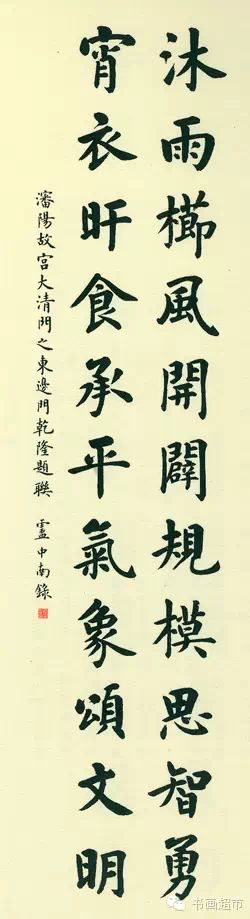 沐雨櫛風開闢規模思智勇
宵衣旰食承平氣象頌文明
瀋陽故宮大清門之東邊門乾隆題聯
盧中南錄
书画超市